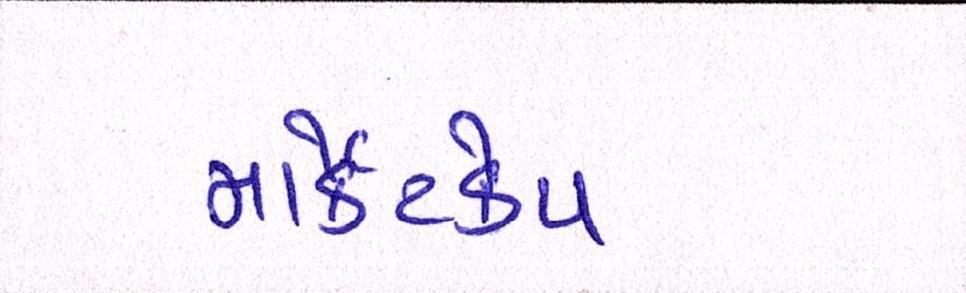 માર્કેટકેપ